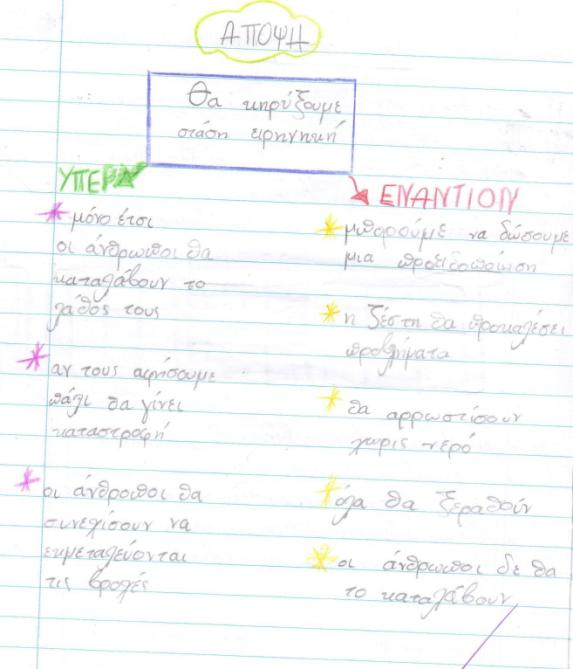 ΑΠΟΨΗ
Θα κηρύξουμε
στάση ειρηνική
ΥΠΕΡ
μόνο έτσι
οι άνθρωποι θα
καταλάβουν το
λάθος τους
αν τους αφήσουμε
πάλι θα γίνει
καταστροφή
οι άνθροποι θα
συνεχίσουν να
εκμεταλεύονται
τις βροχές
ΕΝΑΝΤΙΟΝ
μπορούμε να δώσουμε
μια προειδοποίηση
η ζέστη θα προκαλέσει
προβλήματα
θα αρρωστίσουν
χωρις νερό
όλα θα ξεραθούν
οι άνθρωποι δε θα
το καταλάβουν